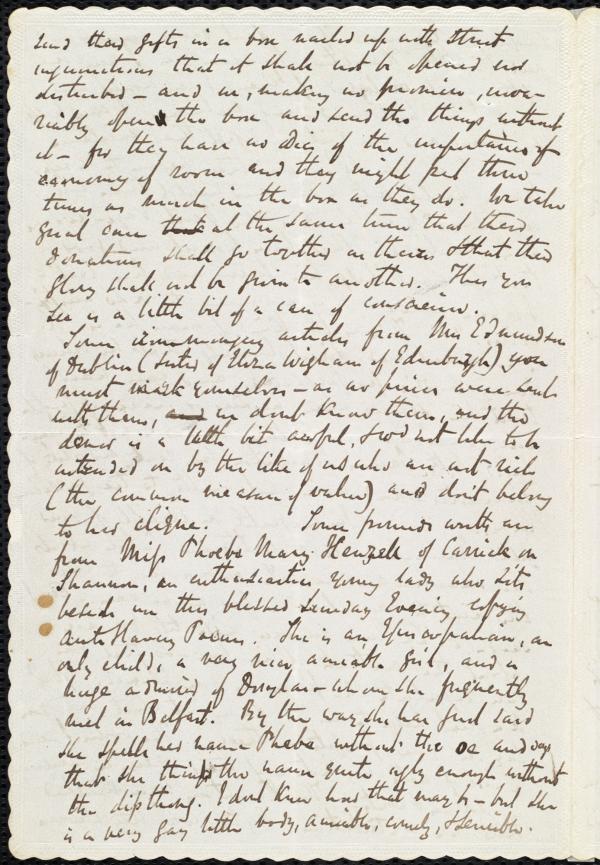 send their gifts in a box nailed up with strict
injunctions that it shall not be opened nor
disturbed - and we, making no promise, inva-
riably open the box and send the things without
it - for they have no idea of the importance of
economy of room and they might put three
times as much in the box as they do. We take
great care that at the same time that their
donations shall go together as theirs & that their
glory shall not be given to another. Thus you
see is a little bit of a case of conscience.
Some ironmongery articles from Mrs Edmundson
of Dublin (sister of Eliza Wigham of Edinburgh) you
must mark yourselves - as no prices were sent
with them, and we dont know them, and the
donor is a little bit awful, & wod not like to be
attended on by the like of us who are not rich
(the common measure of value) and don't belong
to her clique. Some pounds worth are
from Miss Phoebe Mary Henzell of Carrick on
Shannon, an enthusiastic young lady who sits
beside me this blessed Sunday Evening copying
Anti Slavery Poems. She is an Episcopalian, an
only child, a very nice amiable girl, and a
huge admirer of Douglass - whom she frequently
met in Belfast. By the way she has just said
she spells her name Phebe without the oe and says
that she thinks the name quite ugly enough without
the dipthong. I dont know how that may be - but she
is a very gay little body, amiable, comely, & sensible.